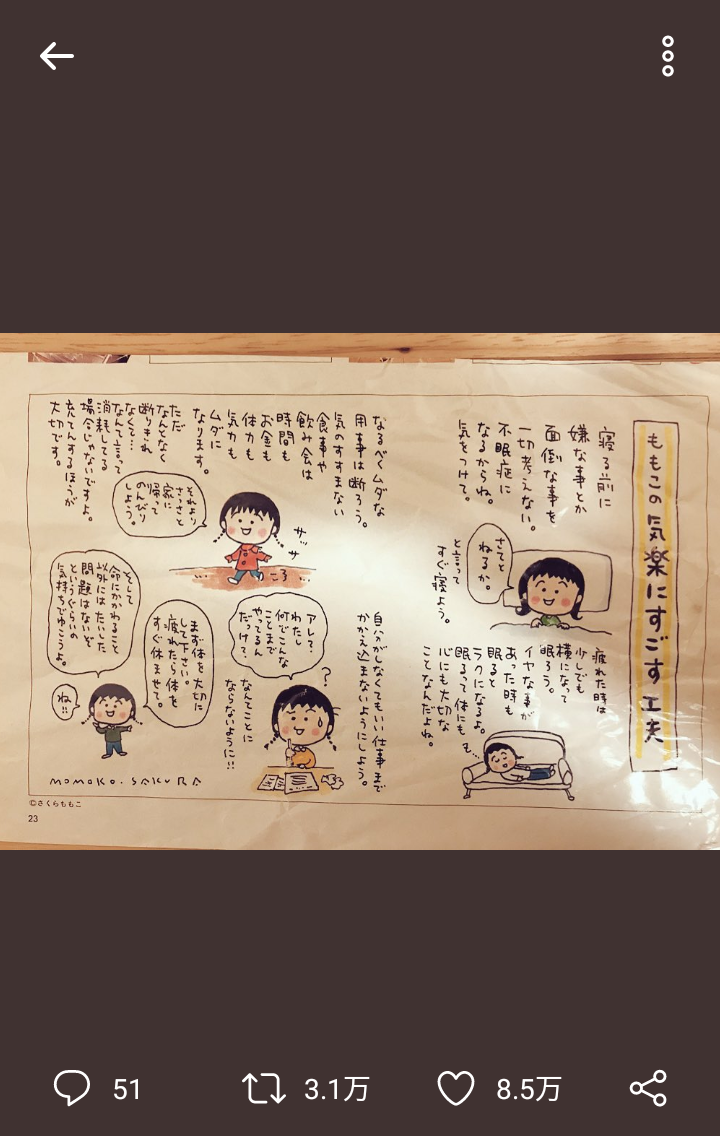 ももこの気楽にすごす工夫
寝る前に
嫌な事とか
面倒な事を
一切考えない。
不眠症に
なるからね。
気をつけて。
さてと
ねるか。
と言って
すぐ寝よう。
疲れた時は
少しでも
横になって
眠ろう。
イヤな事が
あった時も
眠ると
ラクになるよ。
眠るって体にも
心にも大切な
ことなんだよね。
なるべくムダな
用事は断ろう。
気のすすまない
食事や
飲み会は
時間も
お金も
体力も
気力も
ムダに
なります。
サッ
サ
それより
さっさと
家に
帰って
のんびり
しよう。
ただ
なんとなく
断りきれ
なくて…
なんて言って
消耗してる
場合じゃないですよ。
充てんするほうが
大切です。
自分がしなくてもいい仕事まで
かかえ込まないようにしよう。
?
アレ?
わたし
何でこんな
ことまで
やってるん
だっけ?
なんてことに
ならないように!!
まず体を大切に
して下さい。
疲れたら体を
すぐ休ませて。
そして
命にかかわること
以外にはたいした
問題はないぞ
というぐらいの
気持ちでゆこうよ。
ね!!
MOMOKO.SAKURA
©さくらももこ
23
51
3.1万
8.5万